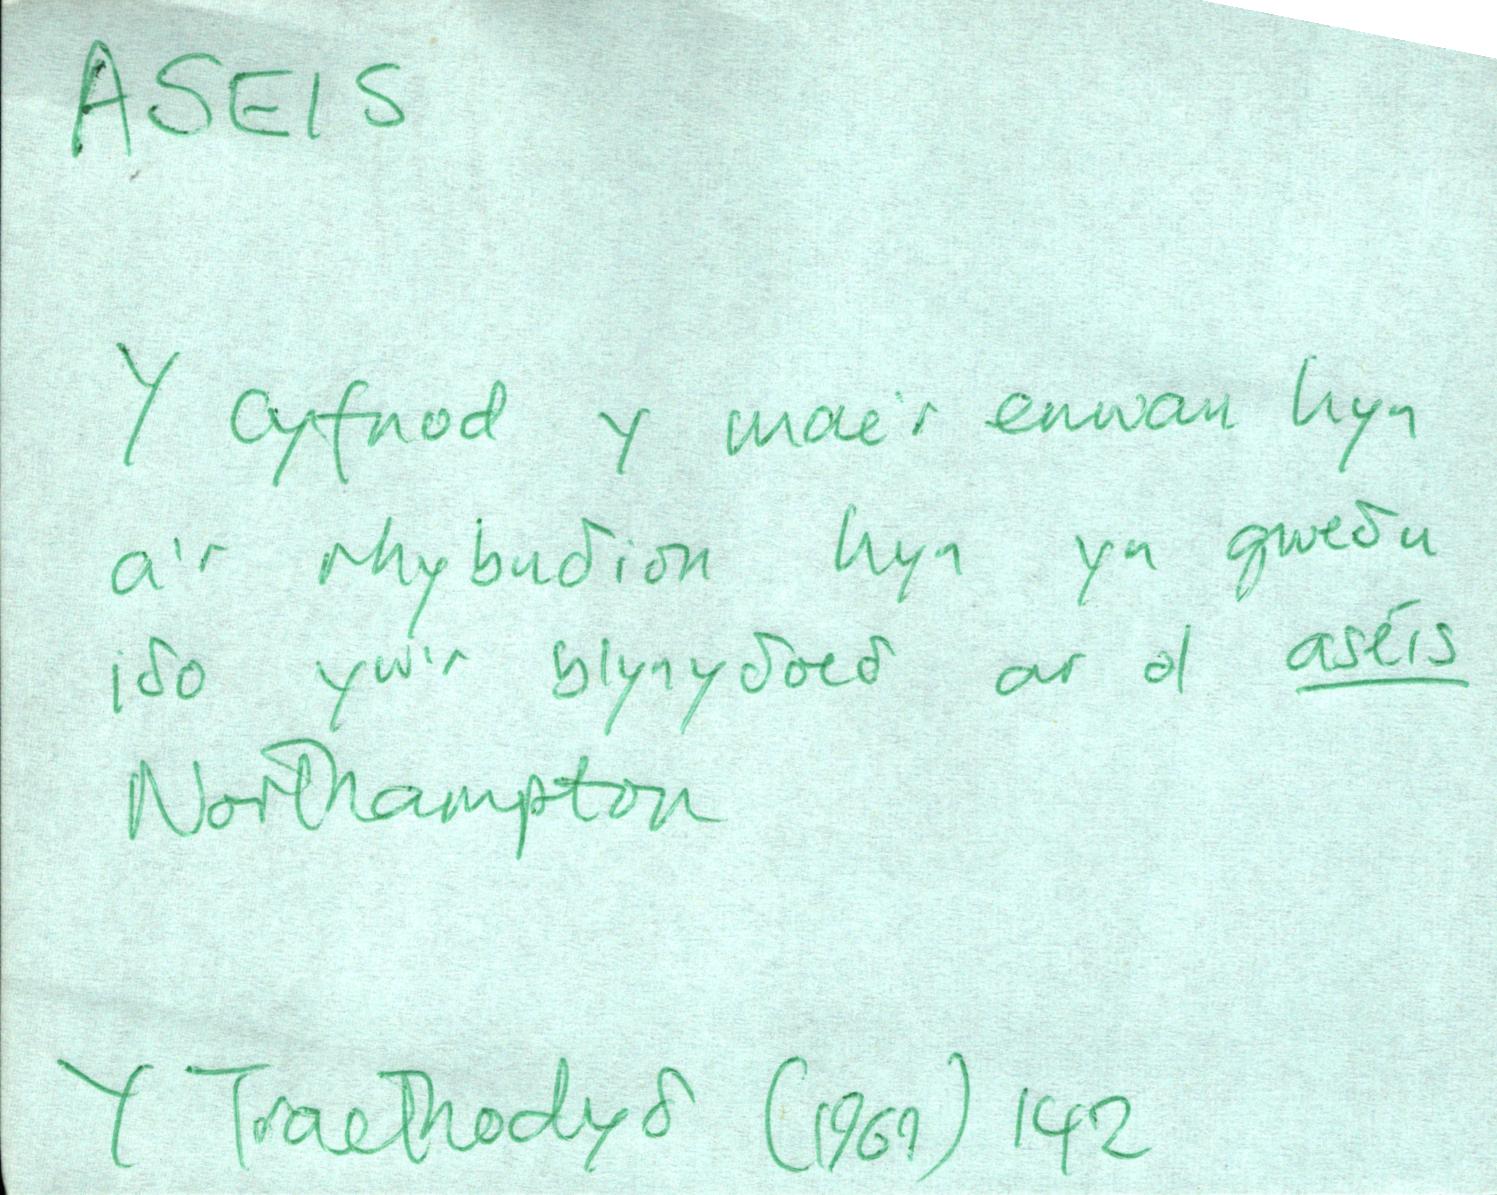 ASEIS
Y cyfnod y mae'r enwau hyn
a'r rhybuδion hyn yn gweδu
iδo yw'r blynyδoeδ ar ol aséis
Northampton
Y Traethodyδ (1967) 142